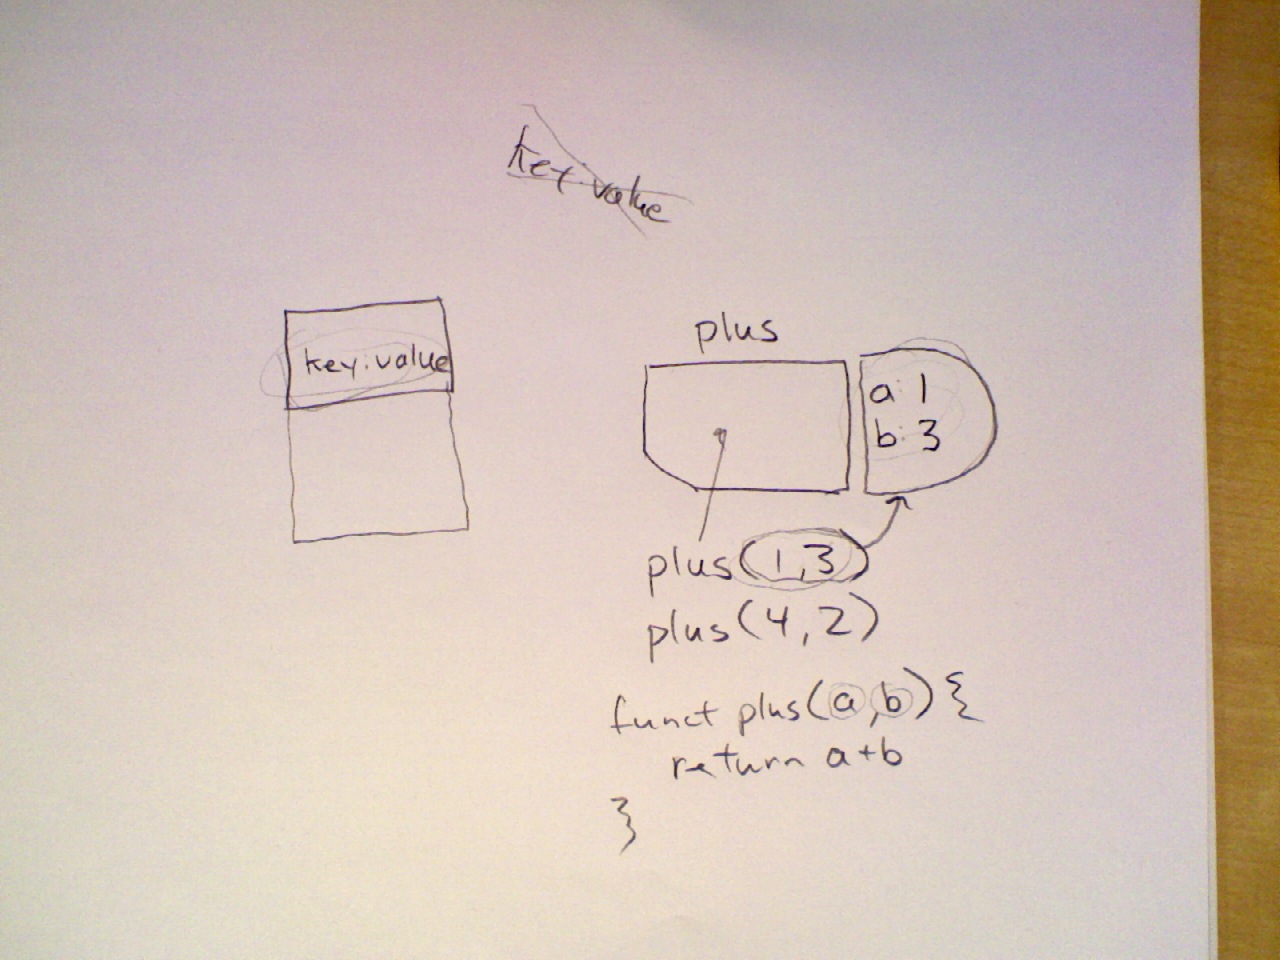 key:value
key:value
plus
a: 1
b: 3
plus(1,3)
plus(4,2)
funct plus(a,b){
return a+b
}